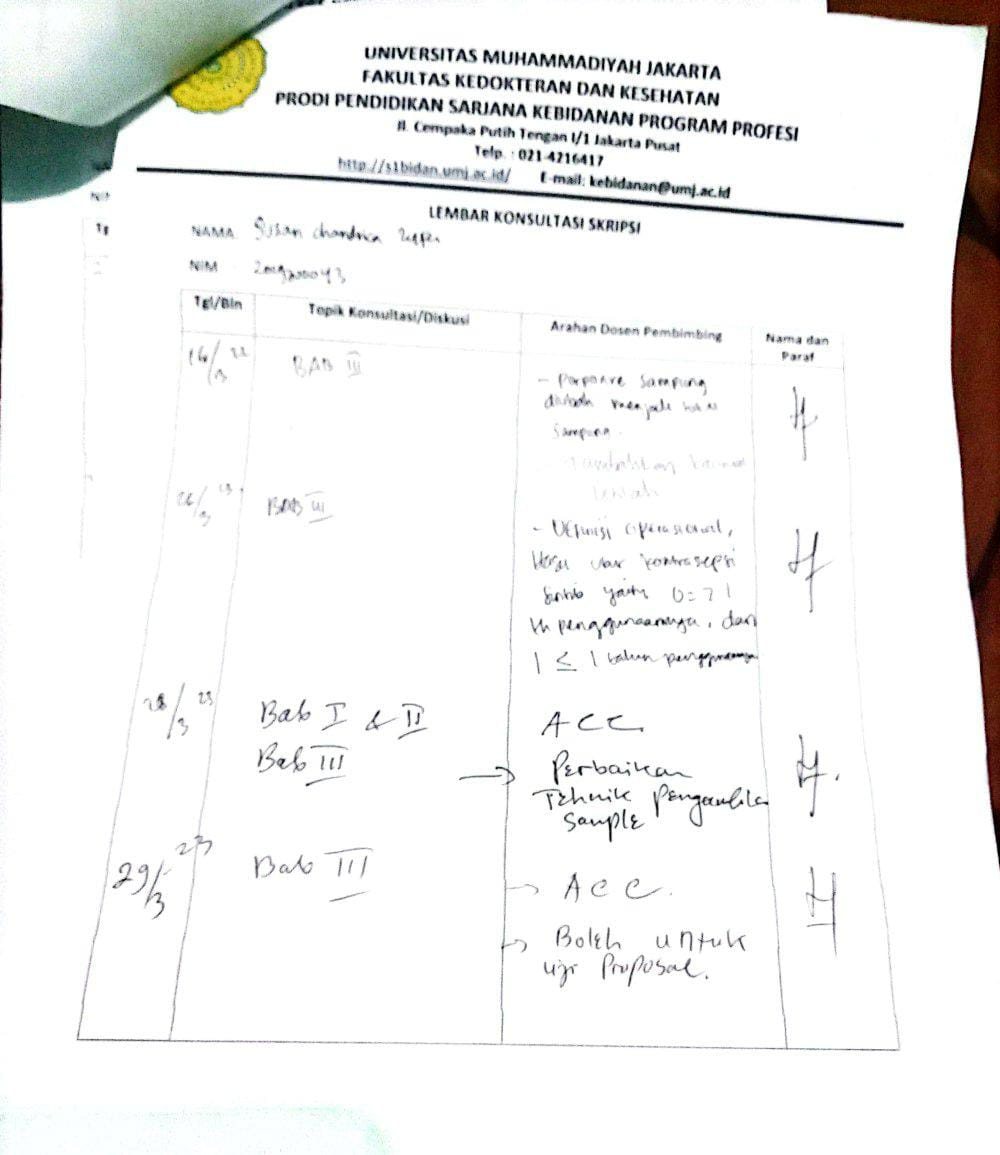 UNIVERSITAS MUHAMMADIYAH JAKARTA
FAKULTAS KEDOKTERAN DAN KESEHATAN
PRODI PENDIDIKAN SARJANA KEBIDANAN PROGRAM PROFESI
Jl. Cempaka Putih Tengah I/1 Jakarta Pusat
Telp. : 021-4216417
http://s1bidan.umj.ac.id/ E-mail: kebidanan@umj.ac.id
LEMBAR KONSULTASI SKRIPSI
NAMA Susan Chandrica
NIM
Tgl/Bln Topik Konsultasi/Diskusi Arahan Dosen Pembimbing Nama dan
Paraf
16/3 BAB III
- Sampling
diubah menjadi
Sampling.
BAB III
- Definisi Operasional,
kontrasepsi
yaitu 0 = > 1
th penggunaannya, dan
1 ≤ 1 tahun penggunaannya
28/3 23 Bab I & II ACC
Bab III → Perbaikan
Tehnik Pengambilan
Sample
29/3 - 23 Bab III → ACC.
→ Boleh untuk
uji Proposal.